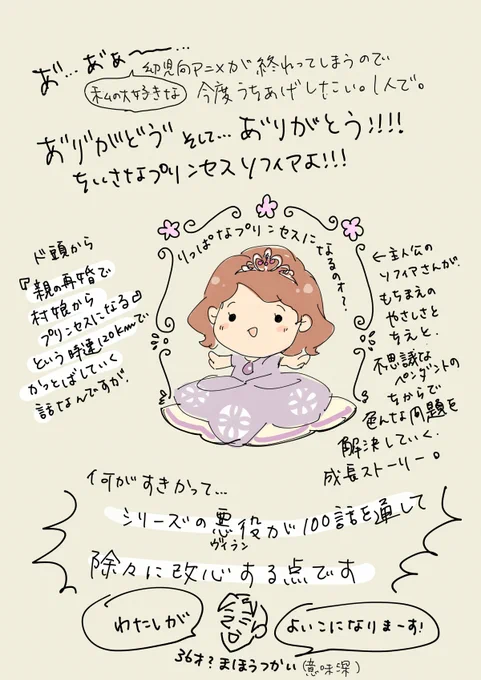 あ゛…あ゛あ〜…
幼児向アニメが終わってしまうので
私の大好きな
今度うちあげしたい。1人で。
あ゛り゛がどう゛ そして… ありがとう!!!!
ちいさなプリンセスソフィアよ!!!
りっぱなプリンセスになるのォ〜
ド頭から
『親の再婚で
村娘から
プリンセスになる』
という時速120kmで
かっとばしていく
話なんですが、
←主人公の
ソフィアさんが、
もちまえの
やさしさと
ちえと、
不思議な
ペンダントの
ちからで
色んな問題を
解決していく、
成長ストーリー。
何がすきかって…
シリーズの悪役が100話を通して
ヴィラン
除々に改心する点です
わたしが
よいこになりまーす!
36才?まほうつかい(意味深)